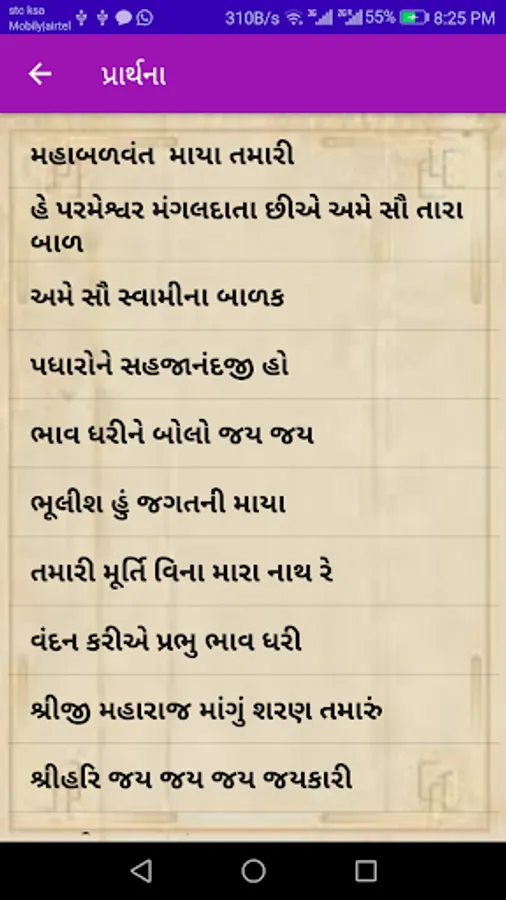 stc ksa
Mobily|airtel
310B/s 3G 2G 55% 8:25 PM
પ્રાર્થના
મહાબળવંત માયા તમારી
હે પરમેશ્વર મંગલદાતા છીએ અમે સૌ તારા
બાળ
અમે સૌ સ્વામીના બાળક
પધારોને સહજાનંદજી હો
ભાવ ધરીને બોલો જય જય
ભૂલીશ હું જગતની માયા
તમારી મૂર્તિ વિના મારા નાથ રે
વંદન કરીએ પ્રભુ ભાવ ધરી
શ્રીજી મહારાજ માંગું શરણ તમારું
શ્રીહરિ જય જય જય જયકારી